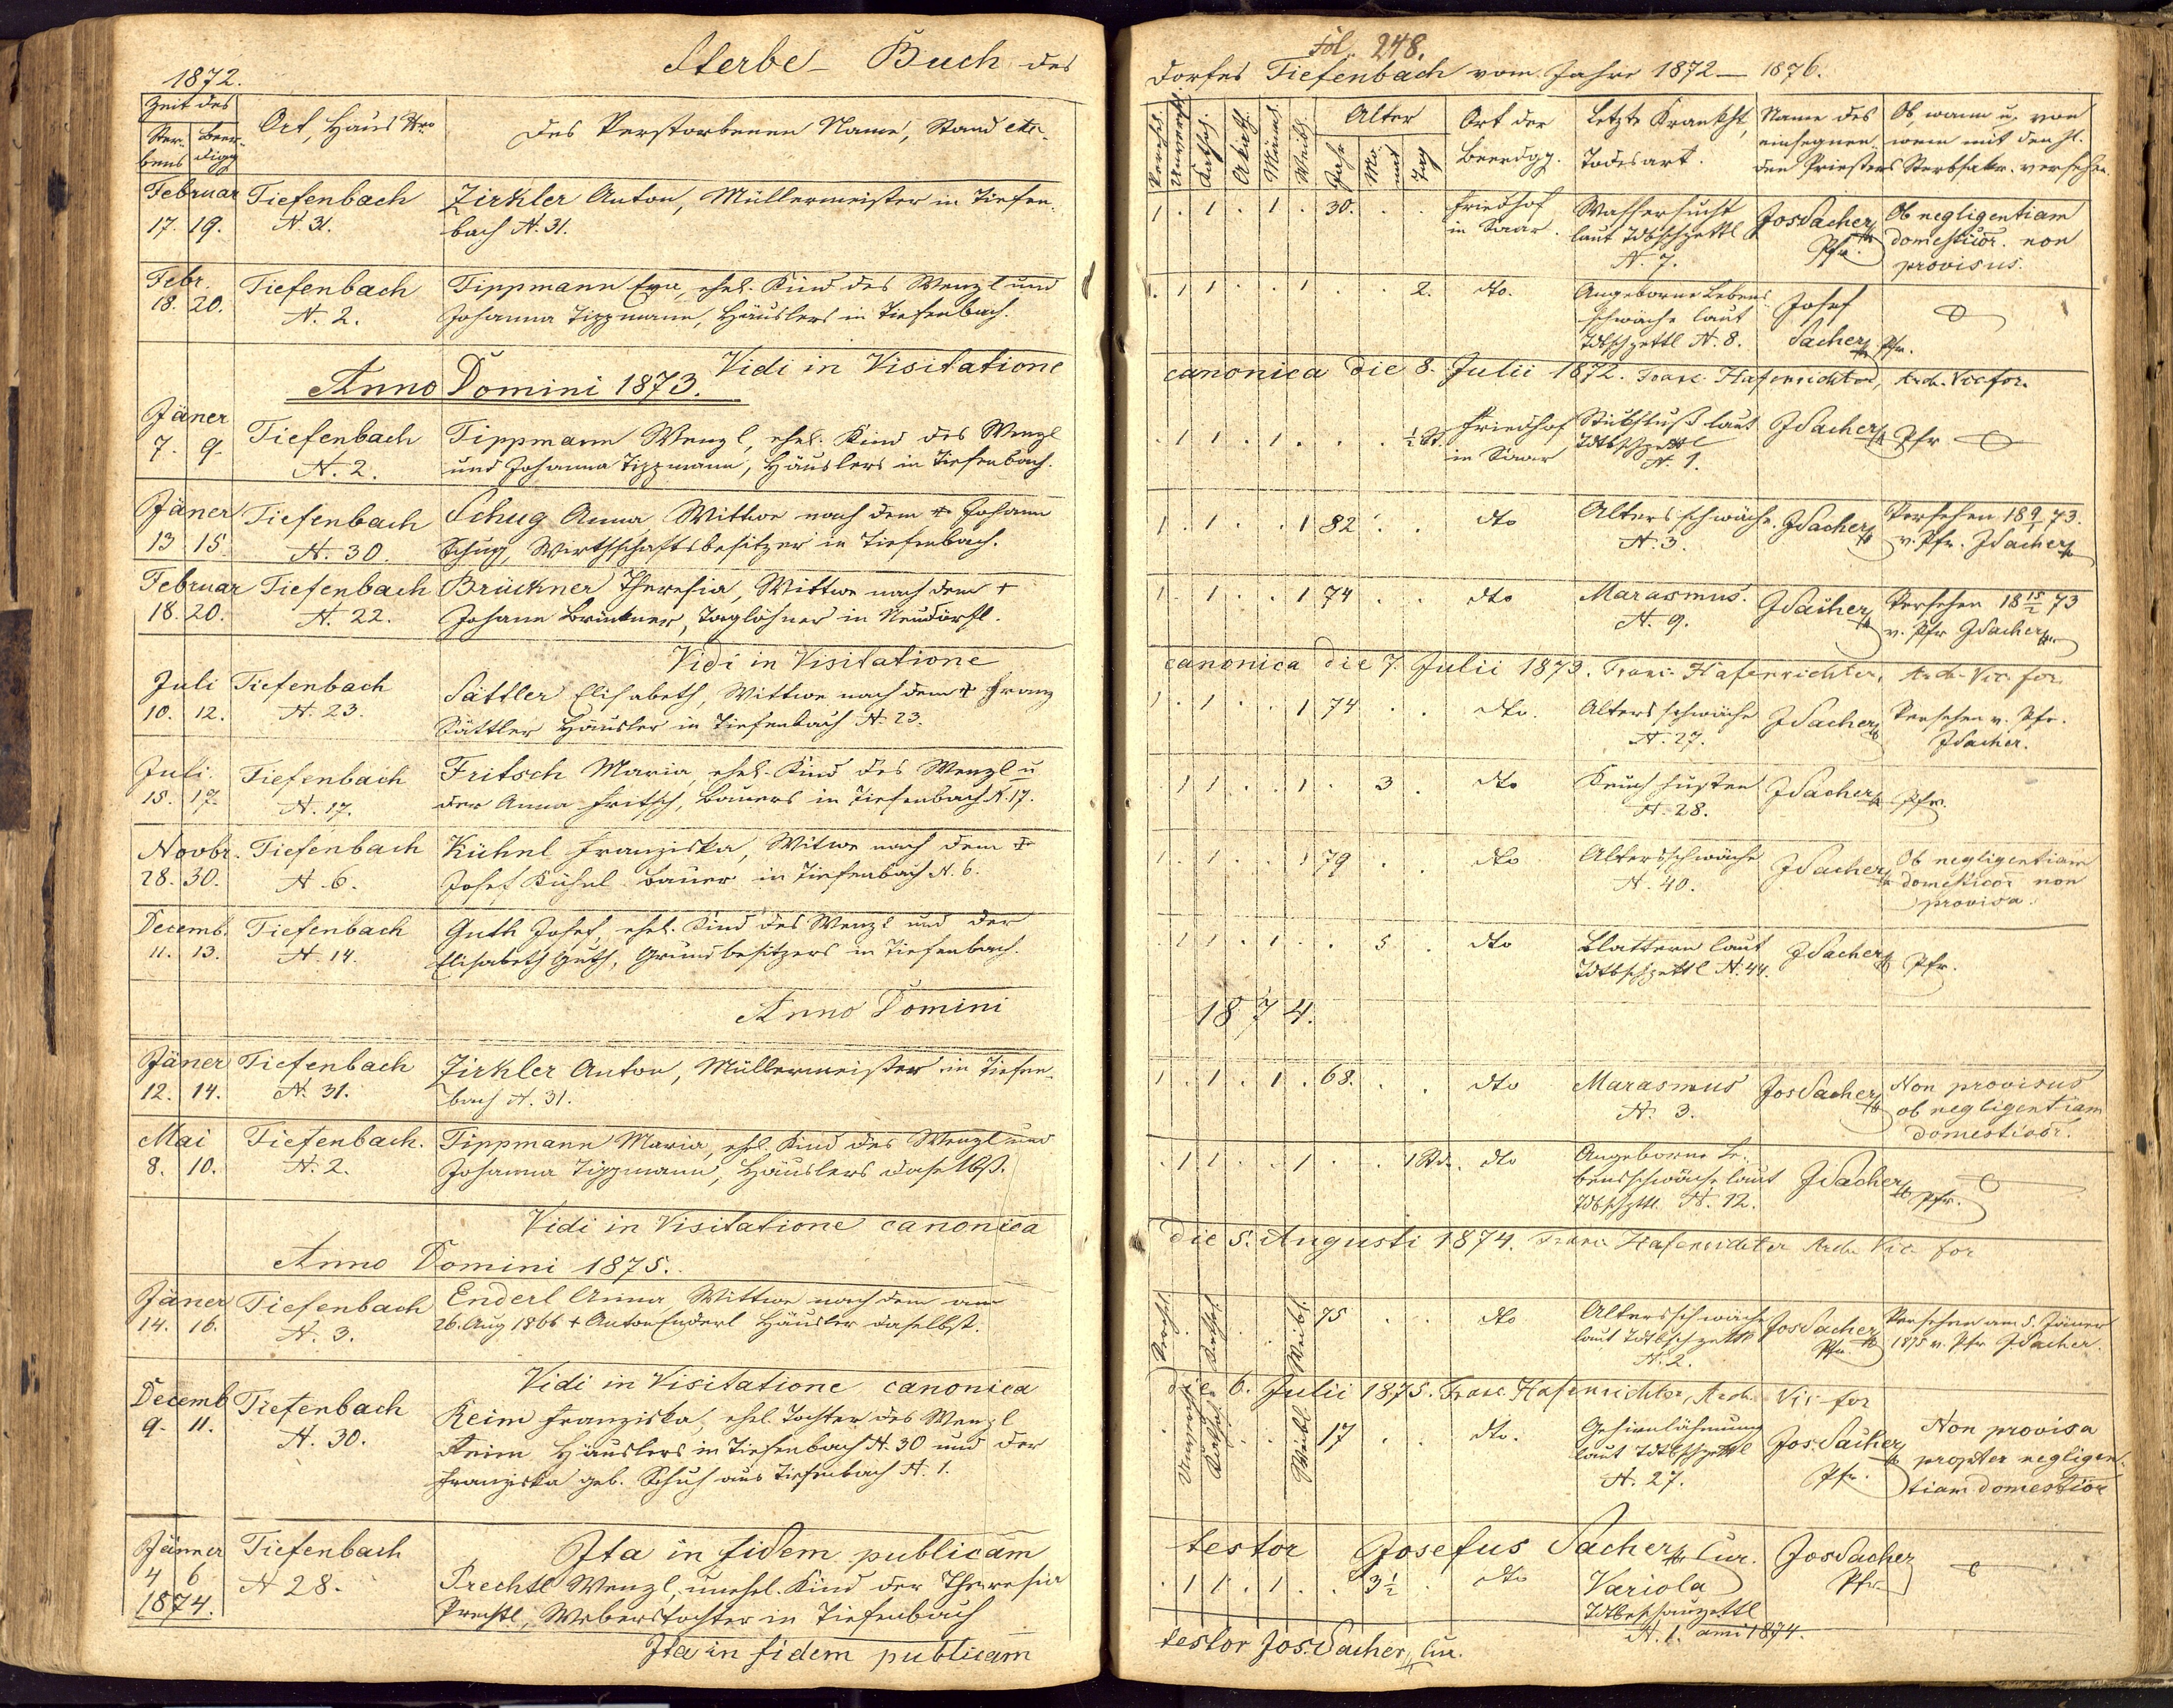 1872.
Sterbe- Buch des
Zeit des
Ster-
bens
Beer-
digg
Ort, Haus Nro
Des Verstorbenen Name, Stand etc.
Februar
17. 19.
Tiefenbach
N. 31.
Zirkler Anton, Müllermeister in Tiefen-
bach N. 31.
Febr.
18. 20.
Tiefenbach
N. 2.
Tippmann Eva, ehel. Kind des Wenzl und
Johanna Tippmann, Häuslers in Tiefenbach.
Vidi in Visitatione
Anno Domini 1873.
Jäner
7. 9.
Tiefenbach
N. 2.
Tippmann Wenzl, ehel. Kind des Wenzl
und Johanna Tippmann, Häuslers in Tiefenbach.
Jäner
13 15.
Tiefenbach
N. 30.
Schug Anna Wittwe nach dem + Johann
Schug, Wirthschaftsbesitzer in Tiefenbach.
Februar
18. 20.
Tiefenbach
N. 22.
Brückner Theresia, Wittwe nach dem +
Johann Brückner, Taglöhner in Neudörfl.
Vidi in Visitatione
Juli
10. 12.
Tiefenbach
N. 23.
Sättler Elisabeth, Wittwe nach dem + Franz
Sättler Häusler in Tiefenbach N. 23.
Juli.
15. 17.
Tiefenbach
N. 17.
Fritsch Maria, ehel. Kind des Wenzl u
der Anna Fritsch, Bauers in Tiefenbach N. 17.
Novbr.
28. 30.
Tiefenbach
N. 6.
Kühnl Franziska, Witwe nach dem +
Josef Kühnl Bauer in Tiefenbach N. 6.
Decemb.
11. 13.
Tiefenbach
N. 14.
Guth Josef, ehel. Kind des Wenzl und der
Elisabeth Guth, Grundbesitzers in Tiefenbach.
Anno Domini
Jäner
12. 14.
Tiefenbach
N. 31.
Zirkler Anton, Müllermeister in Tiefen-
bach N. 31.
Mai
8. 10.
Tiefenbach.
N. 2.
Tippmann Maria, ehl. Kind des Wenzl und
Johanna Tippmann, Häuslers daselbst.
Vidi in Visitatione canonica
Anno Domini 1875.
Jäner
14. 16.
Tiefenbach
N. 3.
Enderl Anna Wittwe nach dem am
26. Aug 1866 + Anton Enderl Häusler daselbst.
Vidi in Visitatione canonica
Decemb
9. 11.
Tiefenbach
N. 30.
Keim Franziska, ehel. Tochter des Wenzl
Keim Häuslers in Tiefenbach N. 30 und der
Franziska geb. Schuh aus Tiefenbach N. 1.
Ita in fidem publicam
Jänner
4 6
1874.
Tiefenbach
N 28.
Prechtl Wenzl, unehel. Kind der Theresia
Prechtl, Weberstochter in Tiefenbach
Ita in fidem publicam
Fol. 248.
Dorfes Tiefenbach vom Jahre 1872 — 1876.
Verehel.
Unverehl.
Kathol.
Akath.
Männl.
Weibl.
Alter
Jahr
Mo-
nat
Tag
Ort der
Beerdgg.
Letzte Krankht,
Todesart.
Name des
einsegnen-
den Priesters
Ob, wann u. von
wem mit den hl.
Sterbsakr. versehen.
1 . 1 . 1 . 30. . .
Friedhof
in Saar.
Wassersucht
laut Tdtbschzettl
N. 7.
Jos Sacher
Pfr.
Ob negligentiam
domesticor. non
provisus.
. 1 1 . . 1 . . 2.
dto.
Angeborne Lebens
schwäche laut
Tdtbschzettl N. 8.
Josef
Sacher Pfr.
canonica die 8. Julii 1872. Franc. Hafenrichter, Arch. Vic for.
. 1 1 . 1 . . . ½ St.
Friedhof
in Saar
Stickfluß laut
Tdtbschzettl
N. 1.
JSacher Pfr
1 . 1 . . 1 82 . .
dto
Altersschwäche
N. 3.
JSacher
Versehen 18 9/1 73.
v. Pfr. JSacher
1 . 1 . . 1 74 . .
dto
Marasmus.
N. 9.
JSacher
Versehen 18 15/2 73
v. Pfr JSacher
canonica die 7. Julii 1873. Franc. Hafenrichter, Arch. Vic. for.
1 . 1 . . 1 74 . .
dto.
Altersschwäche
N. 27.
JSacher
Versehen v. Pfr.
JSacher.
. 1 1 . . 1 . 3 .
dto
Keuchhusten
N. 28.
JSacher Pfr.
1 . 1 . . 1 79 . .
dto
Altersschwäche
N. 40.
JSacher
Ob negligentiam
domesticor non
provisa.
. 1 1 . 1 . . 5 .
dto
Blattern laut
Tdtbschzettl N. 44.
JSacher Pfr.
1874.
1 . 1 . 1 . 68. . .
dto
Marasmus
N. 3.
Jos Sacher
Non provisus
ob negligentiam
domesticor.
. 1 1 . . 1 . . 1 Std.
dto
Angeborne Le-
bensschwäche laut
Tdtbschzttl. N. 12.
JSacher Pfr.
die 5. Augusti 1874. Franc. Hafenrichter Arch. Vic for
Verehel.
Kathol.
Weibl.
75 . .
dto
Altersschwäche
laut Tdtbschzettl
N. 2.
Jos Sacher
Pfr.
Versehen am 5. Jäner
1875 v. Pfr JSacher.
die 6. Julii 1875. Franc. Hafenrichter, Arch. Vic for
Unverehel.
Kathol.
Weibl.
17 . .
dto.
Gehirnlähmung
laut Tdtbschzettl
N. 27.
Jos. Sacher
Pfr.
Non provisa
propter negligen-
tiam domesticor
testor Josefus Sacher Cur.
. 1 1 . 1 . . 3½ .
dto
Variola
Tdtbeschauzettl
N. 1. anni 1874.
Jos Sacher
Pfr
testor Jos. Sacher, Cur.